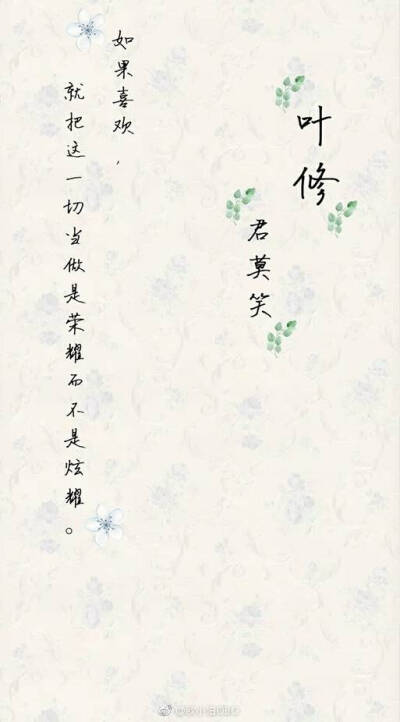 叶修
君莫笑
如果喜欢,
就把这一切当做是荣耀而不是炫耀。